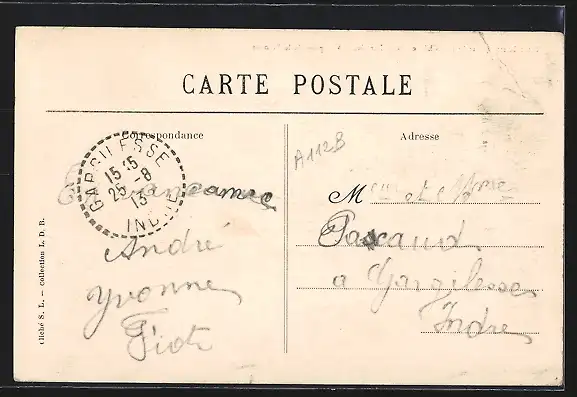 CARTE POSTALE
Correspondance
Adresse
A112B
GARGILESSE
15 15
25 -8
13
INDRE
En vancances
André
Yvonne
M eur et Mme
Pascaud
a Gargilesse
Indre
cliché S. L. — collection L. D. B.